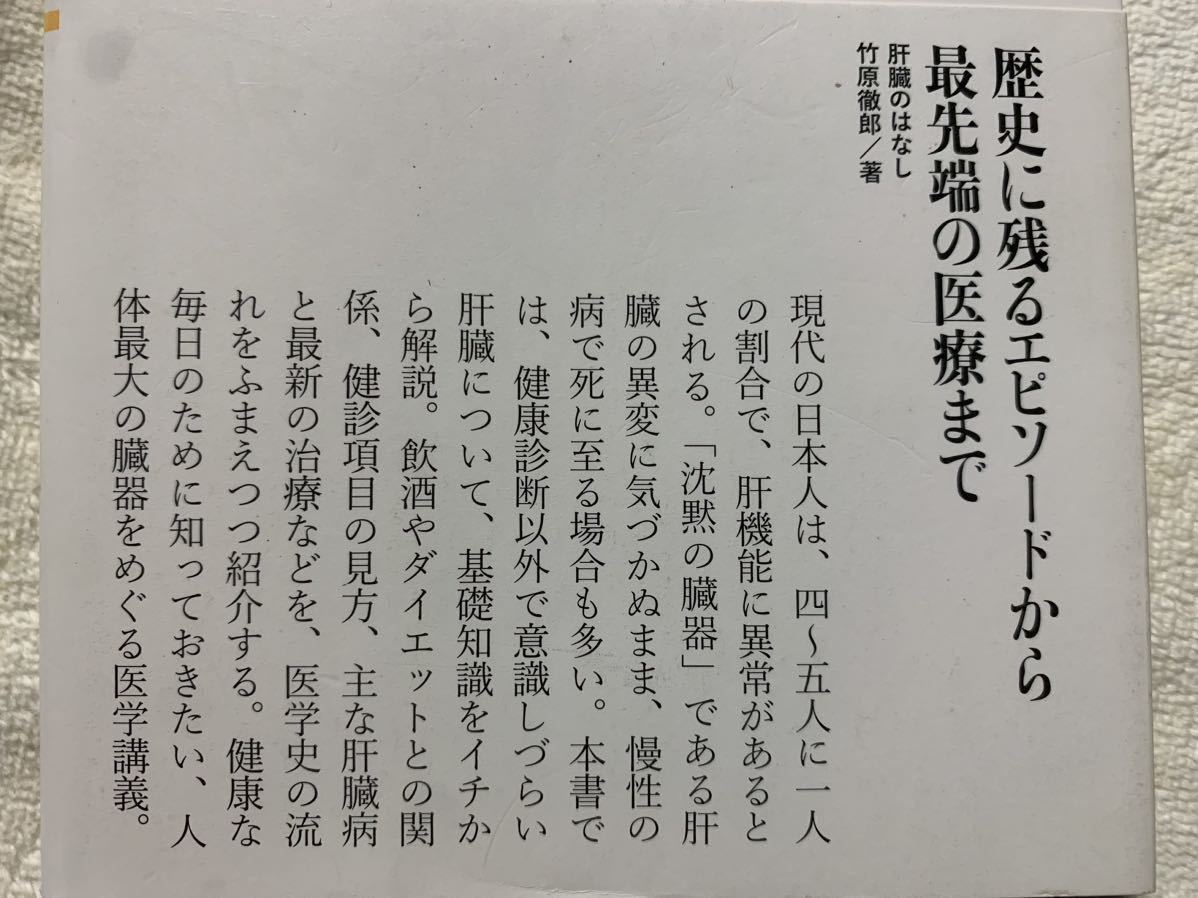 歴史に残るエピソードから
最先端の医療まで
肝臓のはなし
竹原徹郎／著
現代の日本人は、四〜五人に一人
の割合で、肝機能に異常があると
される。「沈黙の臓器」である肝
臓の異変に気づかぬまま、慢性の
病で死に至る場合も多い。本書で
は、健康診断以外で意識しづらい
肝臓について、基礎知識をイチか
ら解説。飲酒やダイエットとの関
係、健診項目の見方、主な肝臓病
と最新の治療などを、医学史の流
れをふまえつつ紹介する。健康な
毎日のために知っておきたい、人
体最大の臓器をめぐる医学講義。